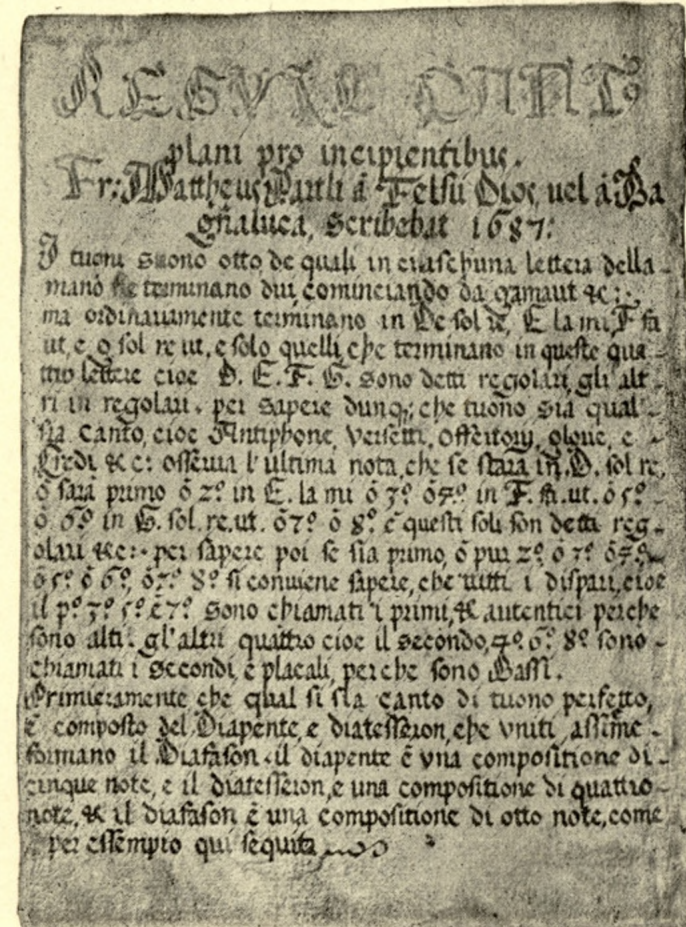 REGULE CANT:
plani pro incipientibus.
Fr: Mattheus Partli á Felsü Dioc, uel á Ba
gñaluca, scribebat 1687:
I tuoni suono otto, de quali in ciascħuna lettera della-
mano se terminano dui, cominciando da gamaut &c:
ma ordinariamente terminano in De sol re, E la mi, F fa
ut, e g sol re ut, e solo quelli, che terminano in queste qua-
ttro lettere cioe D. E. F. G. sono detti regolari, gli alt-
ri in regolari. per sapere dunq; che tuono sia qual-
sia canto, cioe Antiphone, versetti, offeritorij, e -
Credi &c: osserua l'ultima nota, che se stara in D. sol re,
ó sará primo ó 2º in E. la mi ó 3º ó 4º in F. fa. ut. ó 5º-
ó 6º in G. sol. re. ut. ó 7º ó 8º é questi soli son detti reg-
olari &c: per sapere poi se sia primo, ó pur 2º ó 3º ó 4º
ó 5º ó 6º, ó 7º 8º si conuiene sapere, che tutti i dispari, cioe
il pº 3º 5º é 7º sono chiamati i primi, & autentici perche
sono alti. gl'altri quattro cioe il secondo, 4º 6º 8º sono-
chiamati i secondi, é placali, perche sono Bassi.
Primieramente che qual si sia canto di tuono perfetto,
é composto del Diapente, e diatesseron, che vniti assime-
formano il Diafason. il diapente é vna compositione di-
cinque note, e il diatesseron, e una compositione di quattro-
note, & il diafason é una compositione di otto note, come
per essempio qui sequita